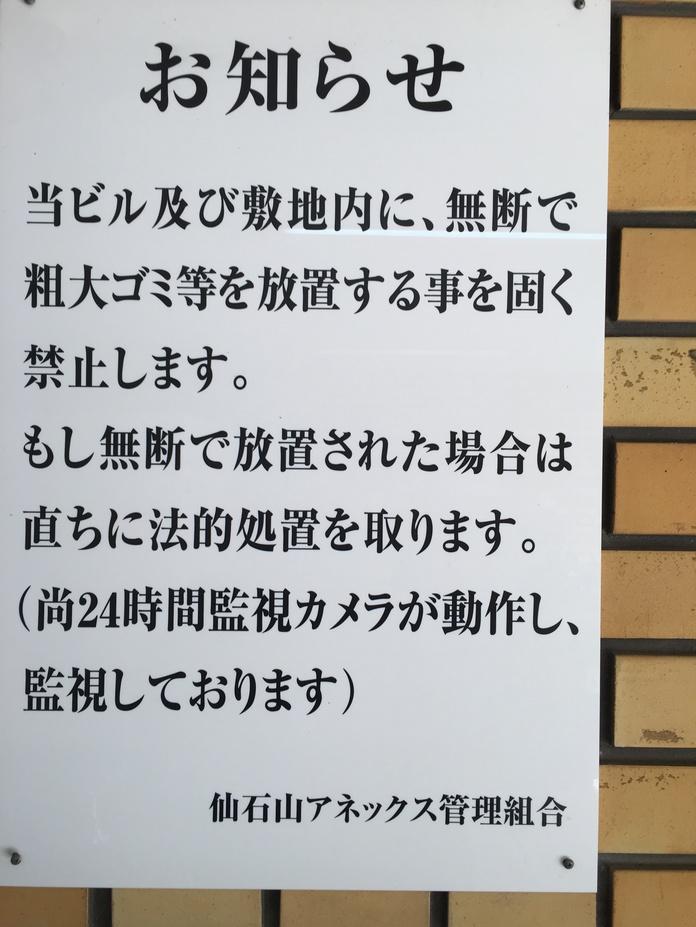 お知らせ
当ビル及び敷地内に、無断で
粗大ゴミ等を放置する事を固く
禁止します。
もし無断で放置された場合は
直ちに法的処置を取ります。
(尚24時間監視カメラが動作し、
監視しております)
仙石山アネックス管理組合